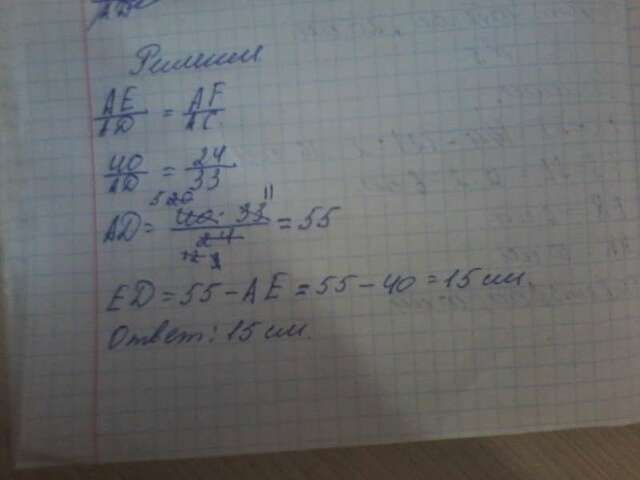 Решение
AE/AD = AF/AC
40/AD = 24/33
AD = 40·33/24 = 55
ED = 55 - AE = 55 - 40 = 15 см.
Ответ: 15 см.